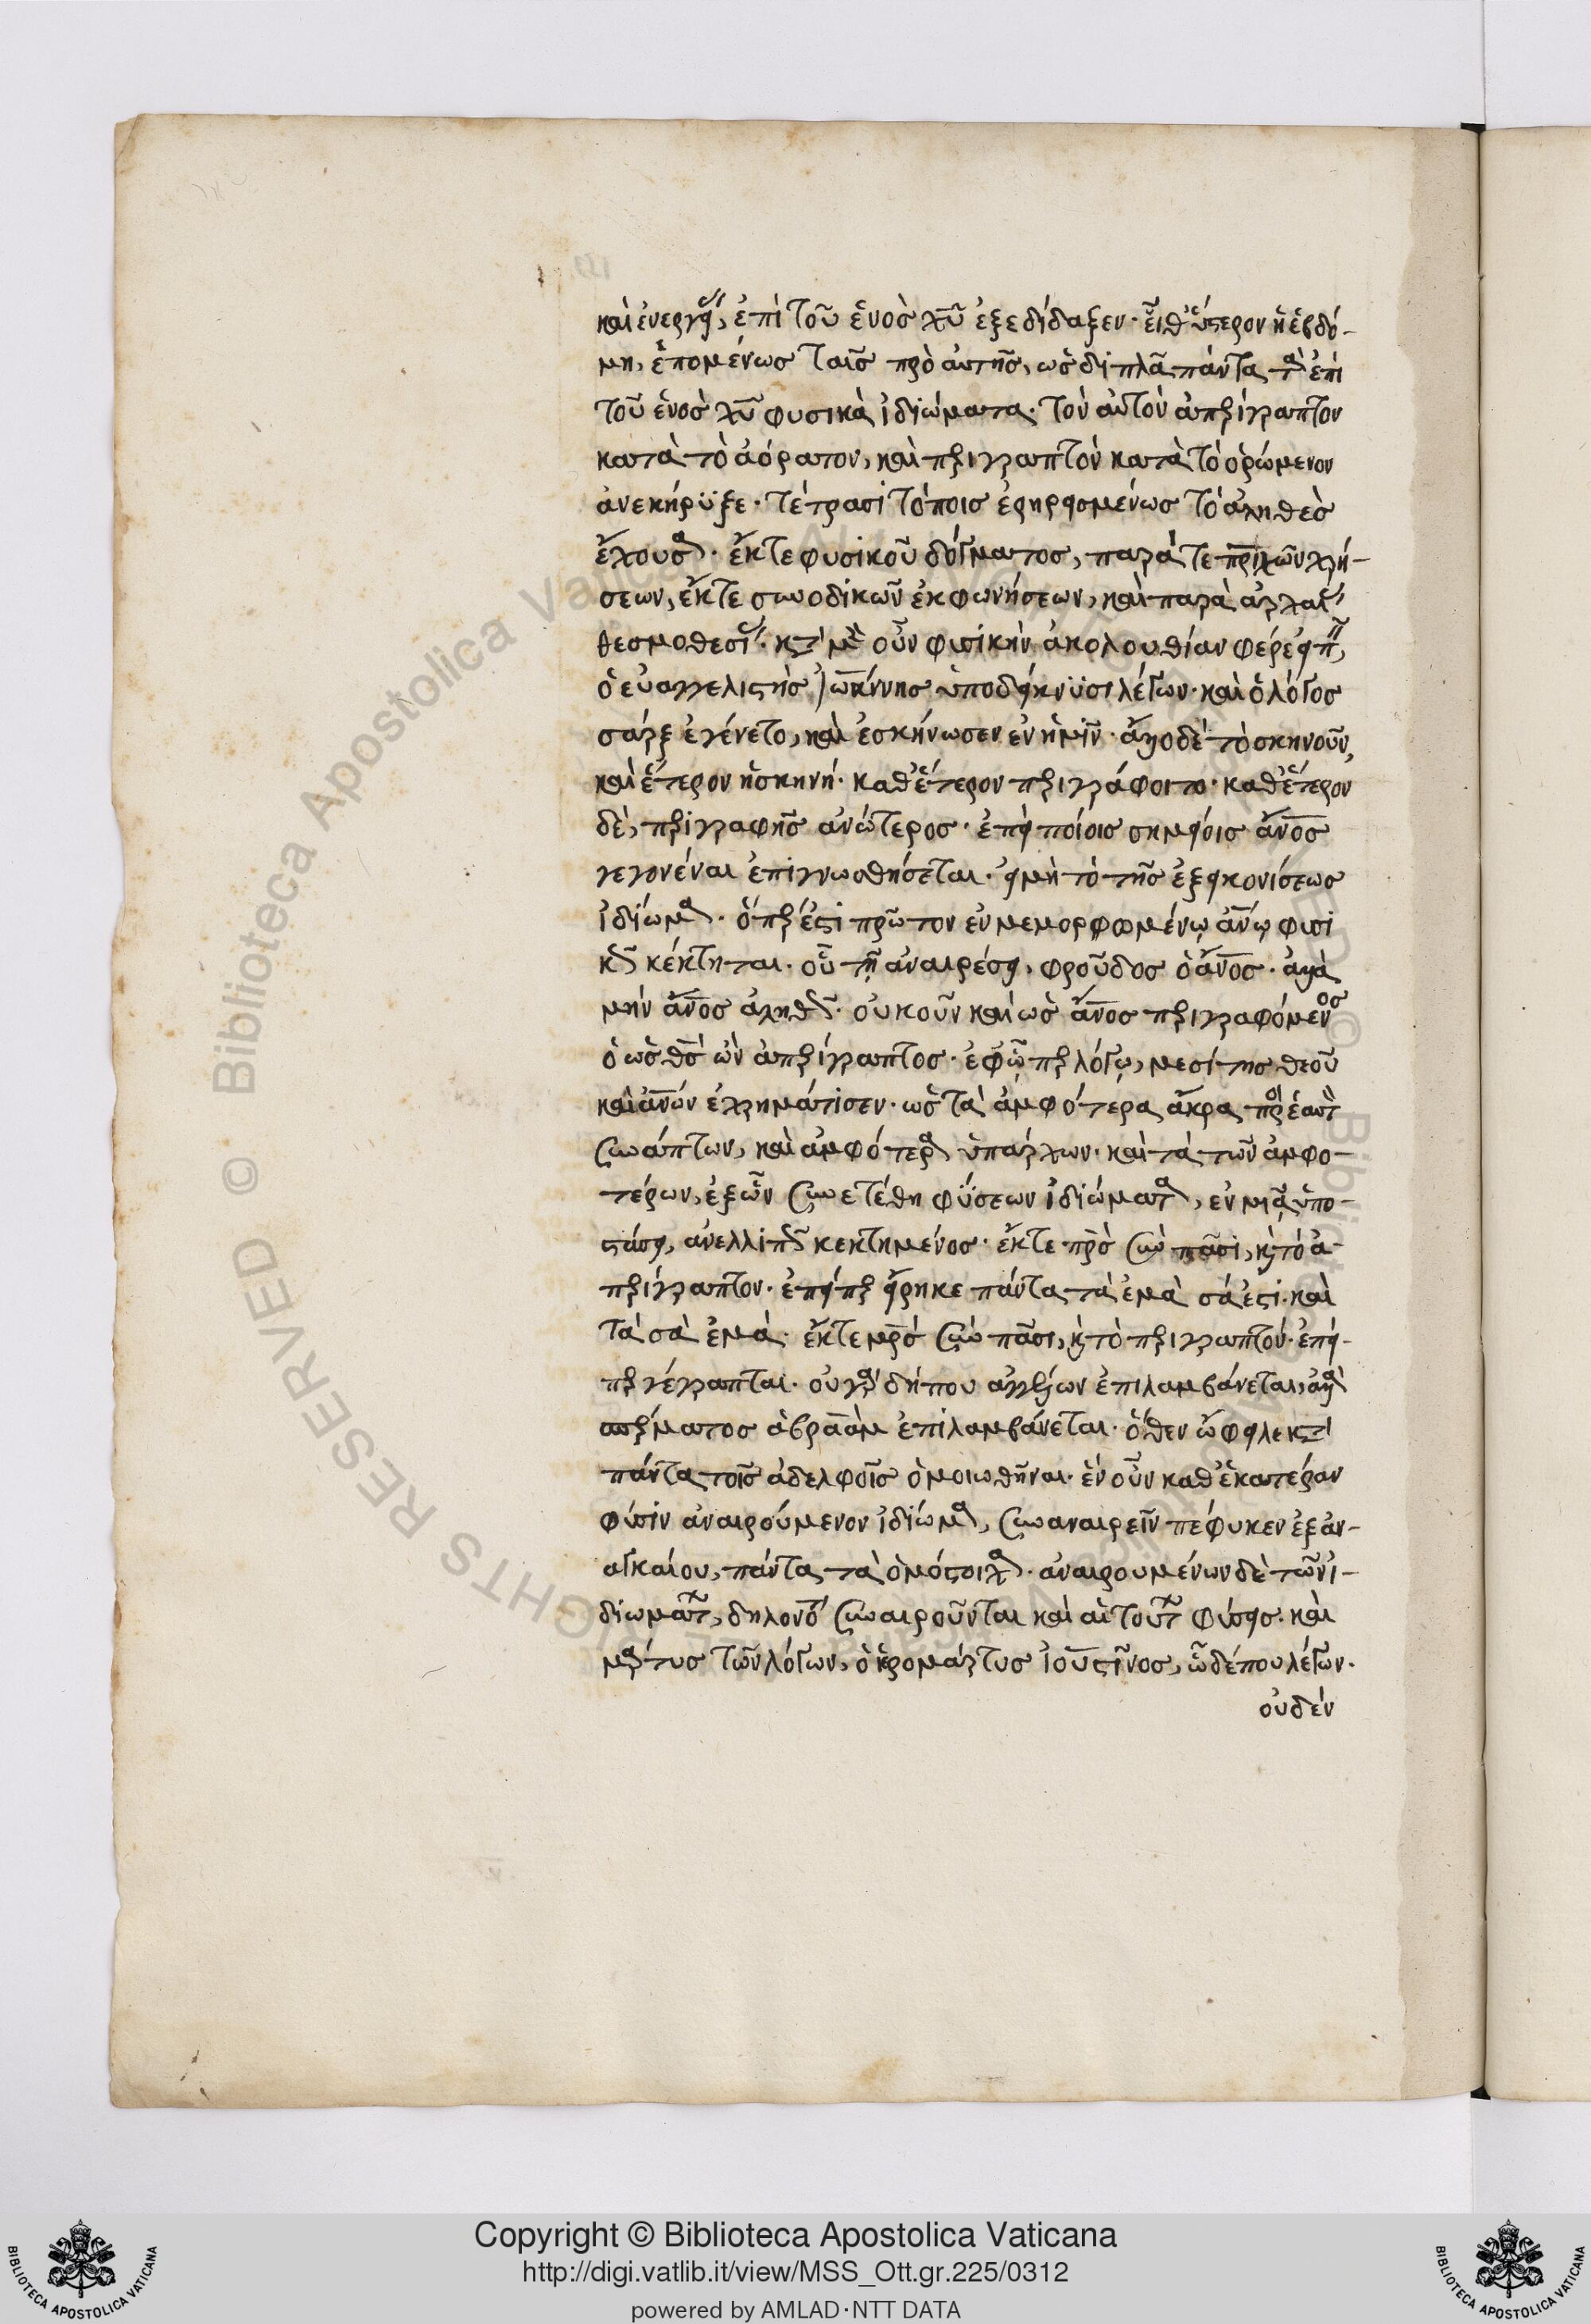 καὶ ἐνεργείας, ἐπὶ τοῦ ἑνὸς χῦ ἐξεδίδαξεν· εἶθ᾽ ὕστερον ἡ ἑβδό-
μη, ἑπομένως ταῖς πρὸ αὐτῆς, ὡς διπλᾶ πάντα τὰ ἐπὶ
τοῦ ἑνὸς χῦ φυσικὰ ἰδιώματα· τὸν αὐτὸν ἀπερίγραπτον
κατὰ τὸ ἀόρατον, καὶ περιγραπτὸν κατὰ τὸ ὁρώμενον
ἀνεκήρυξε· τέτρασι τόποις ἐρηρεισμένως τὸ ἀληθὲς
ἔχουσα· ἔκ τε φυσικοῦ δόγματος, παρά τε πρικῶν χρή-
σεων, ἔκ τε συνοδικῶν ἐκφωνήσεων, καὶ παρὰ ἀρχαίας
θεσμοθεσίας· κατὰ μὲν οὖν φυσικὴν ἀκολουθίαν φέρε εἰπεῖν,
ὁ εὐαγγελιστὴς ἰωάννης ὑποδείκνυσι λέγων· καὶ ὁ λόγος
σὰρξ ἐγένετο, καὶ ἐσκήνωσεν ἐν ἡμῖν· ἄλλο δὲ τὸ σκηνοῦν,
καὶ ἕτερον ἡ σκηνή· καθ᾽ ἕτερον περιγράφοιτο· καθ᾽ ἕτερον
δὲ, περιγραφῆς ἀνώτερος· ἐπεὶ ποίοις σημείοις ἄνος
γεγονέναι ἐπιγνωσθήσεται· εἰ μὴ τὸ τῆς ἐξεικονίσεως
ἰδίωμα· ὅπερ ἐστὶ πρῶτον ἐν μεμορφωμένῳ ἀνῳ φυσι
κῶς κέκτηται· οὗ τῇ ἀναιρέσει, φροῦδος ὁ ἄνος· ἀλλὰ
μὴν ἄνος ἀληθῶς· οὐκοῦν καὶ ὡς ἄνος περιγραφόμενος
ὁ ὡς θς ὢν ἀπερίγραπτος· ἐφ᾽ ᾧπερ λόγῳ, μεσίτης θεοῦ
καὶ ἀνων ἐχρημάτισεν· ὡς τὰ ἀμφότερα ἄκρα πρὸς ἑαυτὸν
συνάπτων, καὶ ἀμφότερα ὑπάρχων· καὶ τὰ τῶν ἀμφο-
τέρων, ἐξ ὧν συνετέθη φύσεων ἰδιώματα, ἐν μιᾷ ὑπο-
στάσει, ἀνελλιπῶς κεκτημένος· ἔκ τε πρς σὺν πᾶσι, καὶ τὸ ἀ-
περίγραπτον· ἐπείπερ εἴρηκε πάντα τὰ ἐμὰ σά ἐστι· καὶ
τὰ σὰ ἐμά· ἔκ τε μρς σὺν πᾶσι, καὶ τὸ περιγραπτόν· ἐπεί-
περ γέγραπται· οὐ γὰρ δήπου ἀγγέλων ἐπιλαμβάνεται, ἀλλὰ
σπέρματος ἀβραὰμ ἐπιλαμβάνεται· ὅθεν ὤφειλε κατὰ
πάντα τοῖς ἀδελφοῖς ὁμοιωθῆναι· ἓν οὖν καθ᾽ ἑκατέραν
φύσιν ἀναιρούμενον ἰδίωμα, συναναιρεῖν πέφυκεν ἐξ ἀν-
αγκαίου, πάντα τὰ ὁμόστοιχα· ἀναιρουμένων δὲ τῶν ἰ-
διωμάτων, δηλονότι συναιροῦνται καὶ αἱ τούτων φύσεις· καὶ
μάρτυς τῶν λόγων, ὁ ἱερομάρτυς ἰουστῖνος, ὧδέ που λέγων·
οὐδέν
Copyright © Biblioteca Apostolica Vaticana
http://digi.vatlib.it/view/MSS_Ott.gr.225/0312
powered by AMLAD·NTT DATA